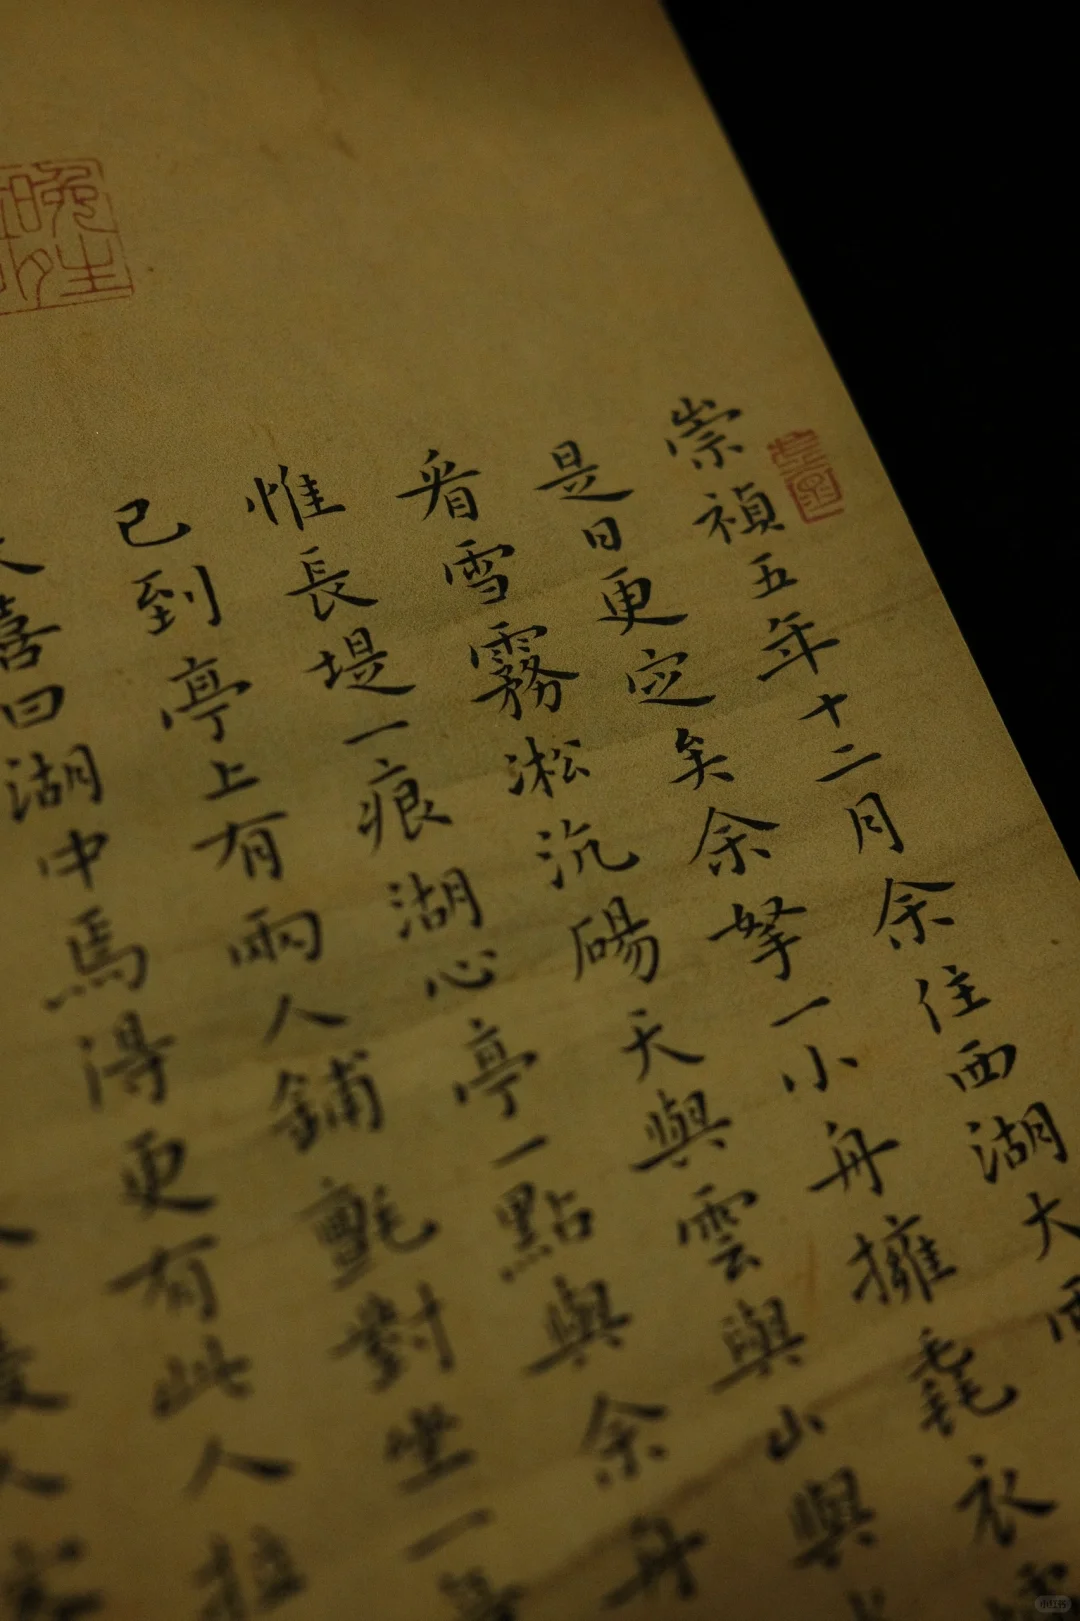 崇禎五年十二月余住西湖大
是日更定矣余拏一小舟擁毳衣
看雪霧淞沆碭天與雲與山與
惟長堤一痕湖心亭一點與余舟
已到亭上有兩人鋪氈對坐一
喜曰湖中焉得更有此人拉
小红书